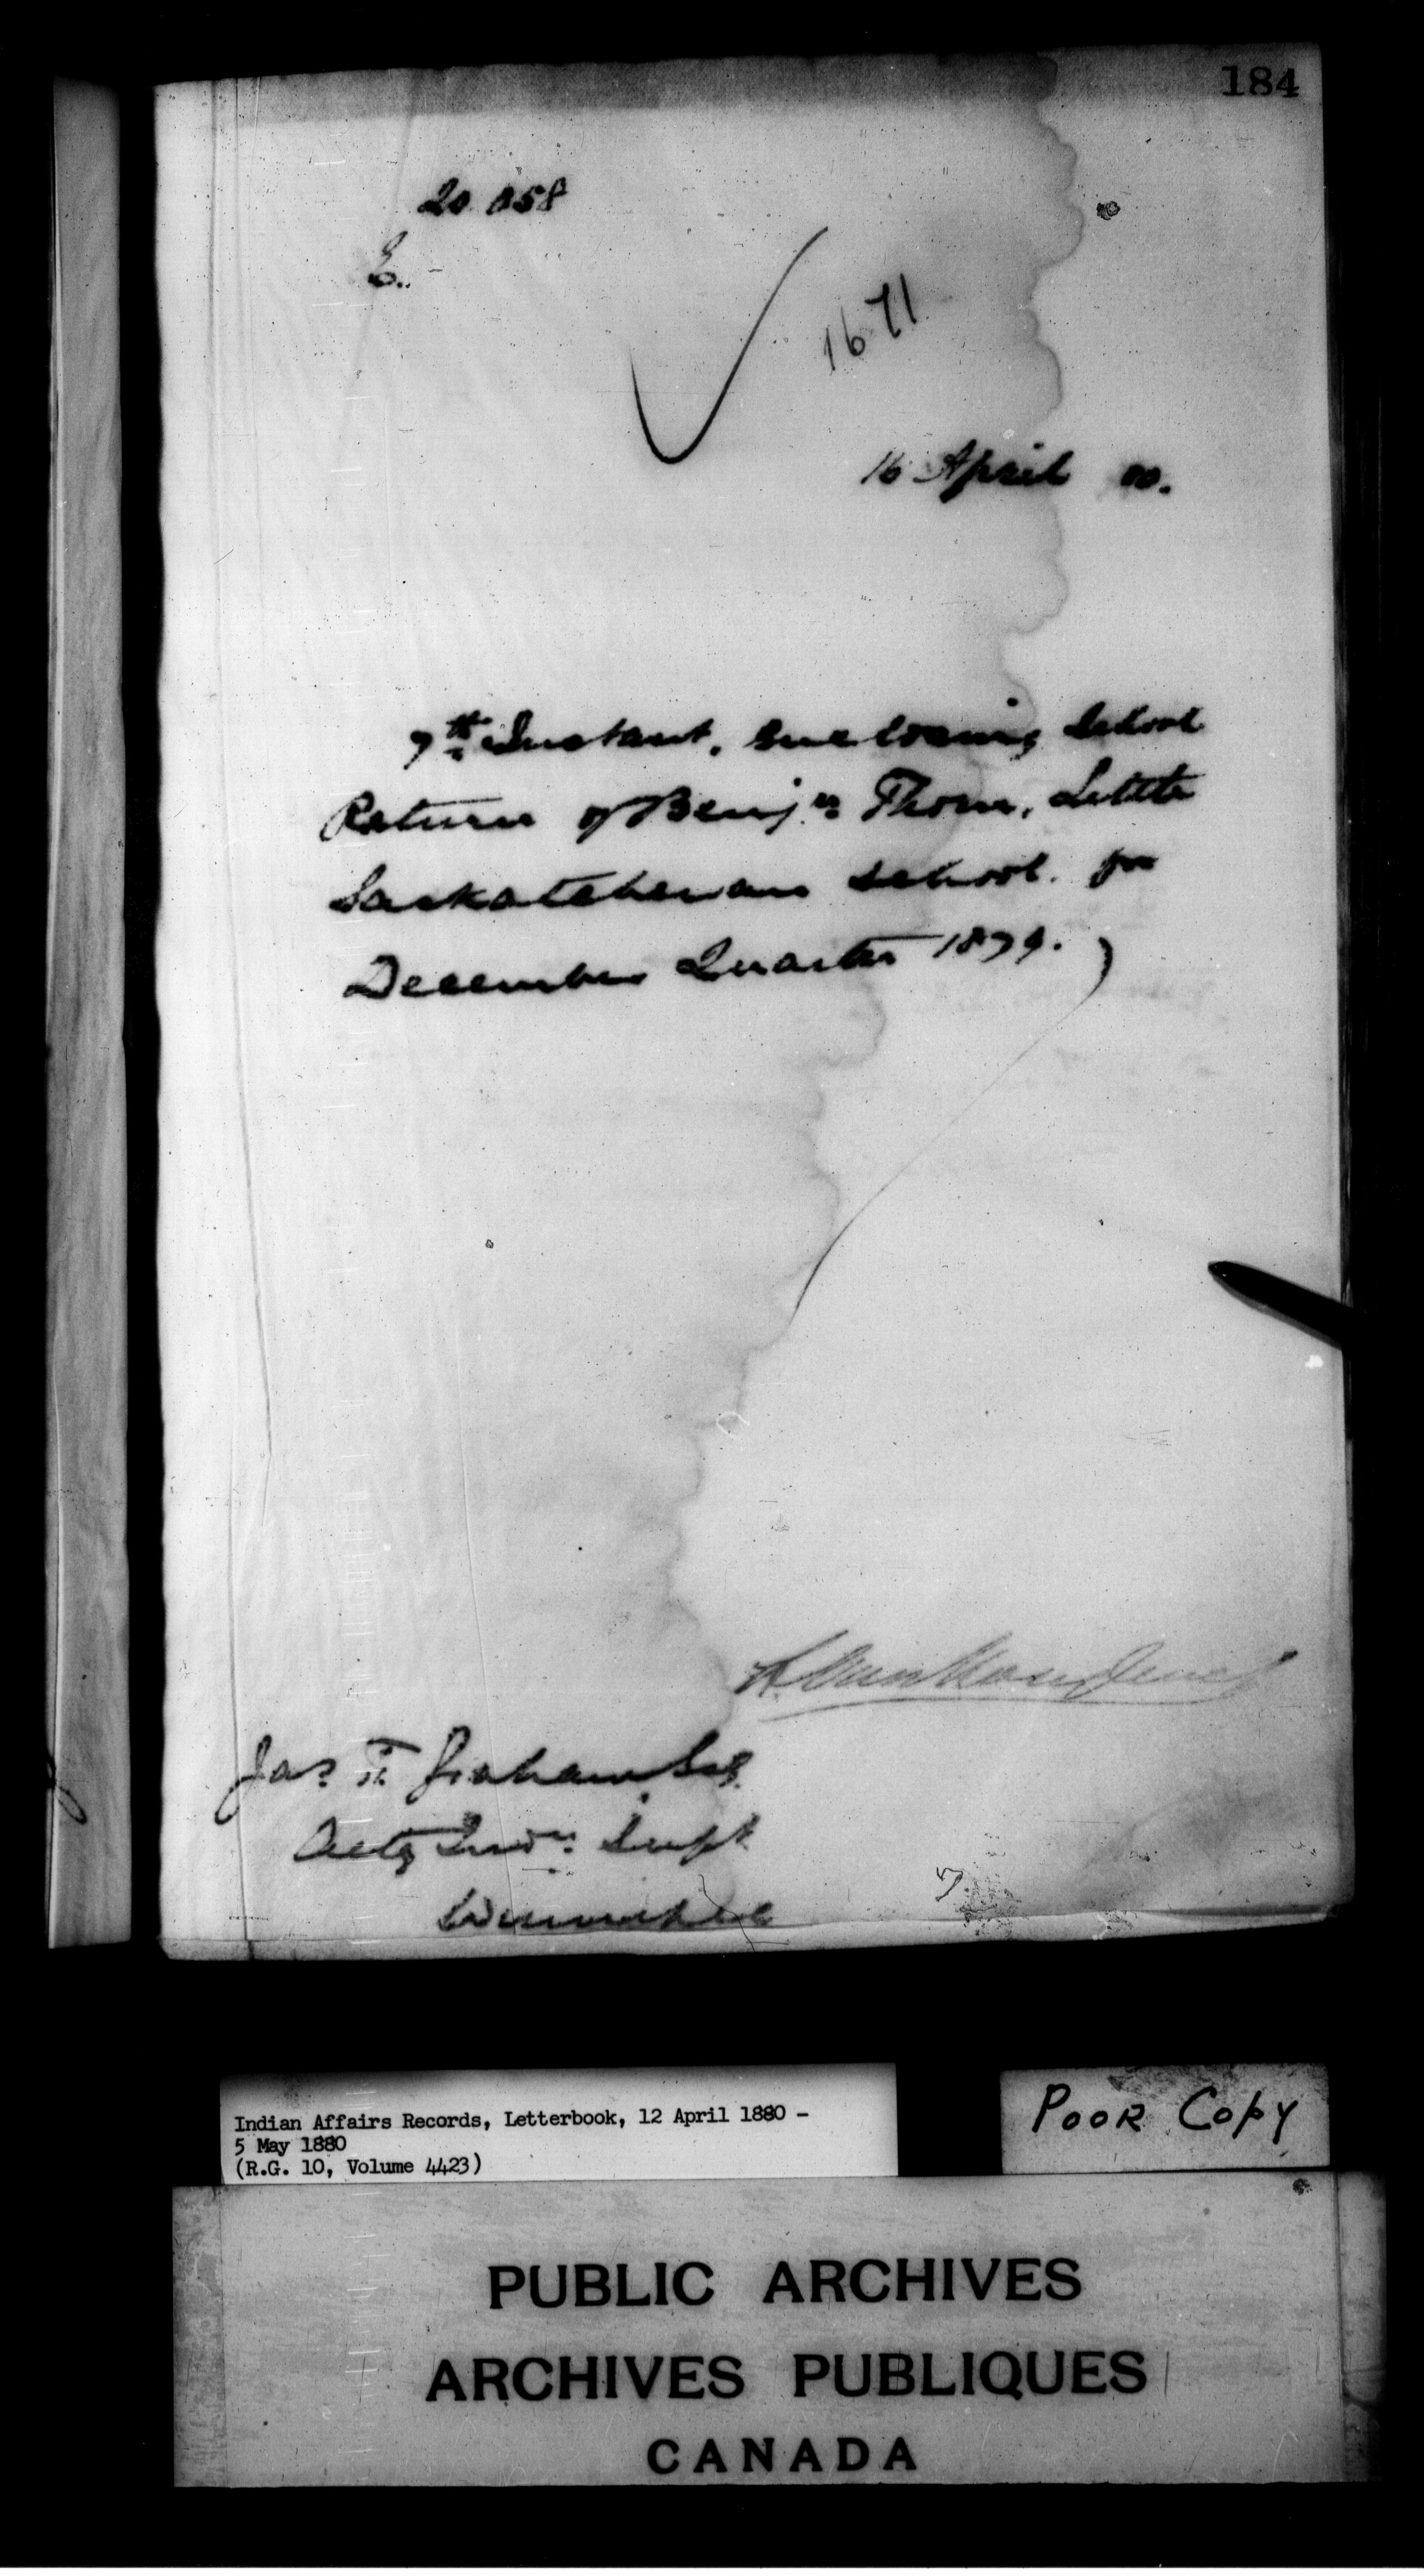 184
20.058
E.
1671
16 April 80.
7th Instant, enclosing School
Return of Benjn Thom, Little
Saskatchewan School for
December Quarter 1879.
L. Vankoughnet
Jas. F. Graham Esq
Actg Indn Supt
Winnipeg
Indian Affairs Records, Letterbook, 12 April 1880 -
5 May 1880
(R.G. 10, Volume 4423)
POOR COPY
PUBLIC ARCHIVES
ARCHIVES PUBLIQUES
CANADA